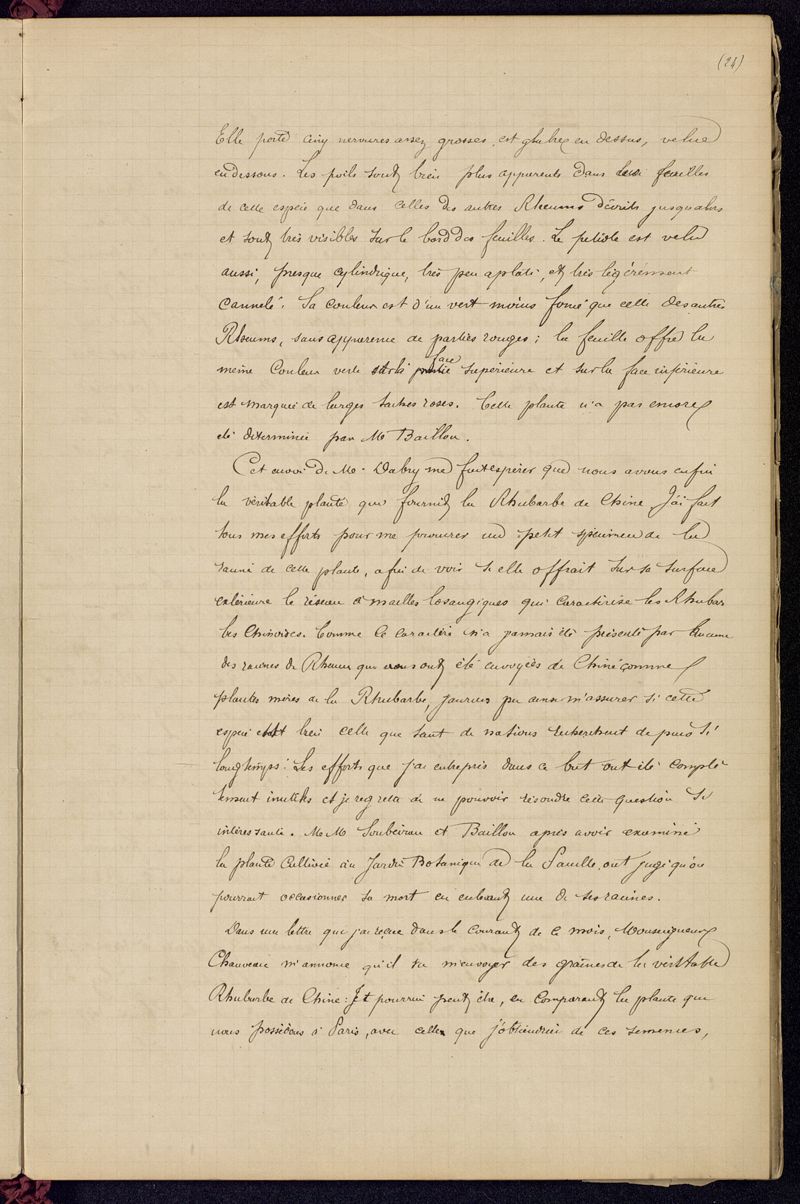 (24)
Elle porte cinq nervures assez grosses, est glabre en dessus, velue
en dessous. Les poils sont bien plus apparents dans les feuilles
de cette espèce que dans celles des autres Rheums décrits jusqu'alors
et sont très visibles sur le bord des feuilles. Le petiole est velu
aussi, presque cylindrique, très peu aplati, et très légèrement
cannelé. Sa couleur est d'un vert moins foncé que celle des autres
Rheums, sans apparence de parties rouges; la feuille offre la
même couleur verte sur la face supérieure et sur la face inférieure
est marquée de larges taches roses. Cette plante n'a pas encore
été déterminée par Mr Baillon.
Cet envoi de M. Dabry me fait espérer que nous avons enfin
la véritable plante qui fournit la Rhubarbe de Chine J'ai fait
tous mes efforts pour me procurer un petit spécimen de la
racine de cette plante, afin de voir si elle offrait sur sa surface
extérieure le réseau à mailles losangiques qui caractérise les Rhubar
bes Chinoises. Comme ce caractère n'a jamais été présenté par aucune
des racines de Rheum qui nous ont été envoyées de Chine comme
plantes mères de la Rhubarbe, j'aurais pu ainsi m'assurer si cette
espèce est bien celle que tant de nations recherchent depuis si
longtemps. Les efforts que j'ai entrepris dans ce but ont été complè
tement inutiles et je regrette de ne pouvoir résoudre cette question si
intéressante. MM Soubeiran et Baillon après avoir examiné
la plante cultivée au Jardin Botanique de la Faculté, ont jugé qu'on
pourrait occasionner sa mort en enlevant une de ses racines.
Dans une lettre que j'ai reçue dans le courant de ce mois, Monseigneur
Chauveau m'annonce qu'il va m'envoyer des graines de la véritable
Rhubarbe de Chine: Je pourrai peut être, en comparant la plante que
nous possédons à Paris, avec celle que j'obtiendrai de ces semences,